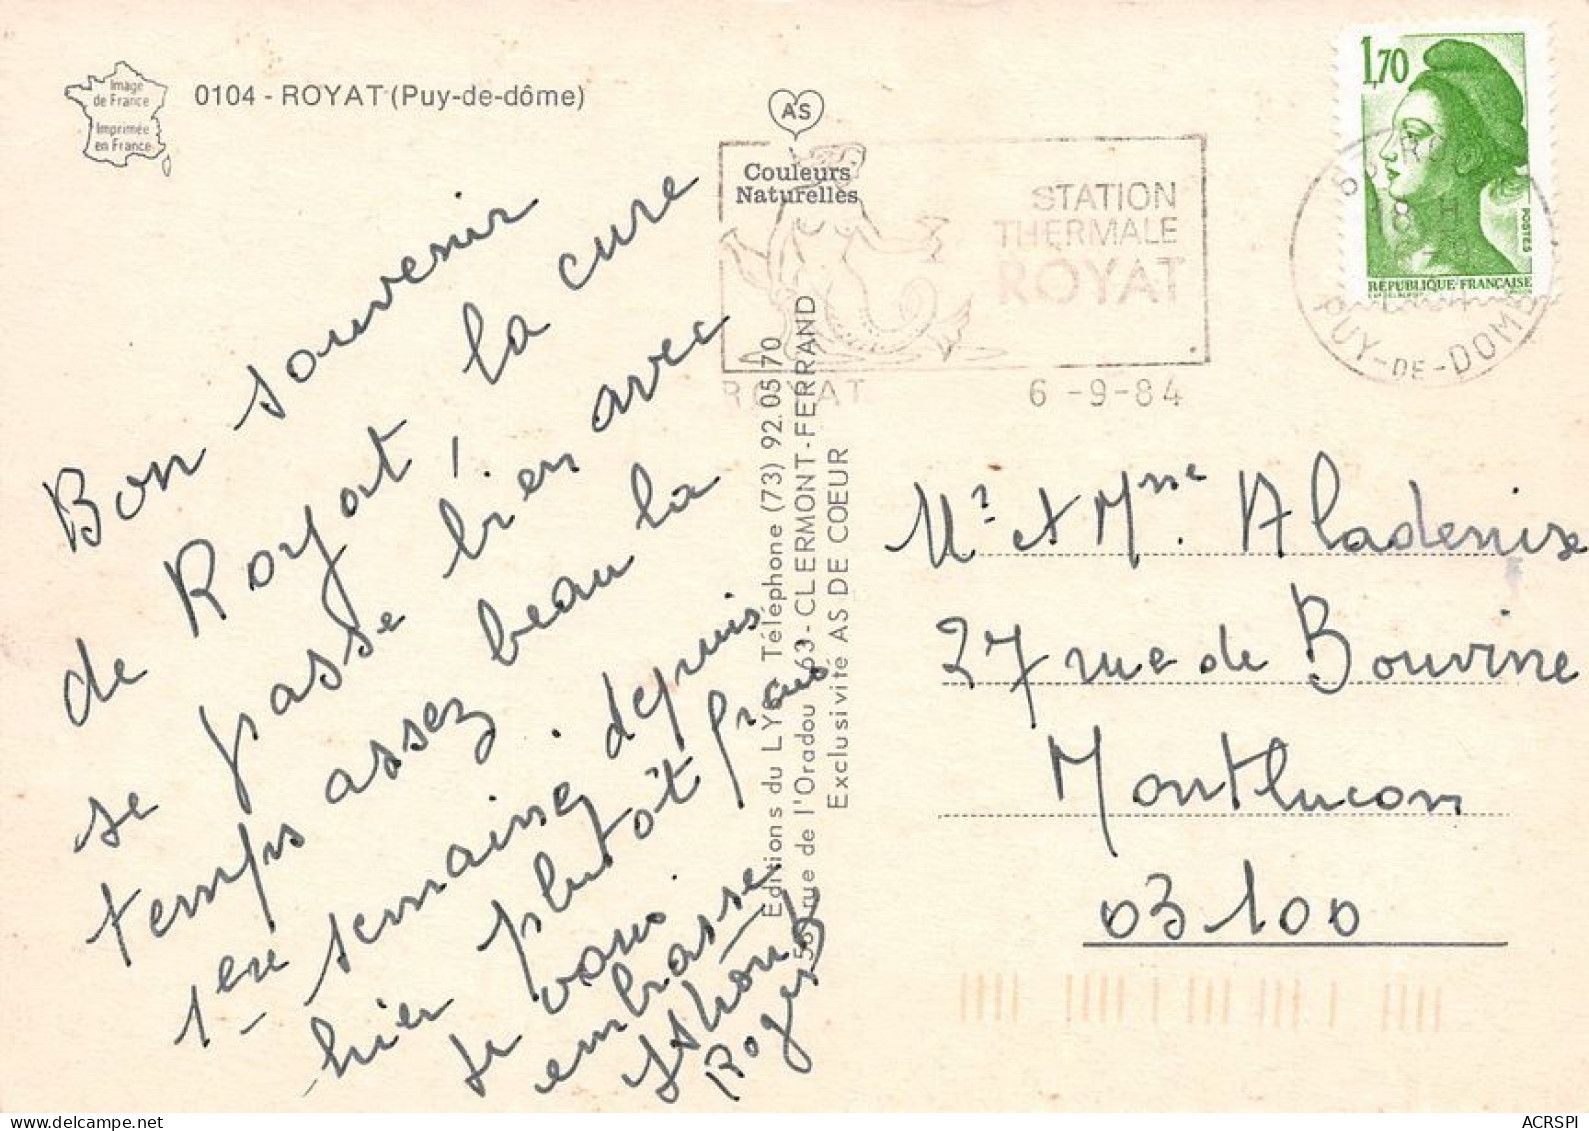 Image
de France
Imprimée
en France
0104 - ROYAT (Puy-de-dôme)
AS
Couleurs
Naturelles
STATION
THERMALE
ROYAT
ROYAT
6 -9-84
18 H
PUY-DE-DOME
1,70
POSTES
REPUBLIQUE FRANÇAISE
Bon souvenir
de Royat, la cure
se passe bien avec
temps assez beau la
1ere semaine, depuis
hier plutôt frais
Je vous
embrasse
Roger
Editions du LYS Téléphone (73) 92.05 70
56, rue de l'Oradou 63 - CLERMONT-FERRAND
Exclusivité AS DE COEUR
Mr et Mme Aladenise
27 rue de Bouvine
Montlucon
03100
ACRSPI